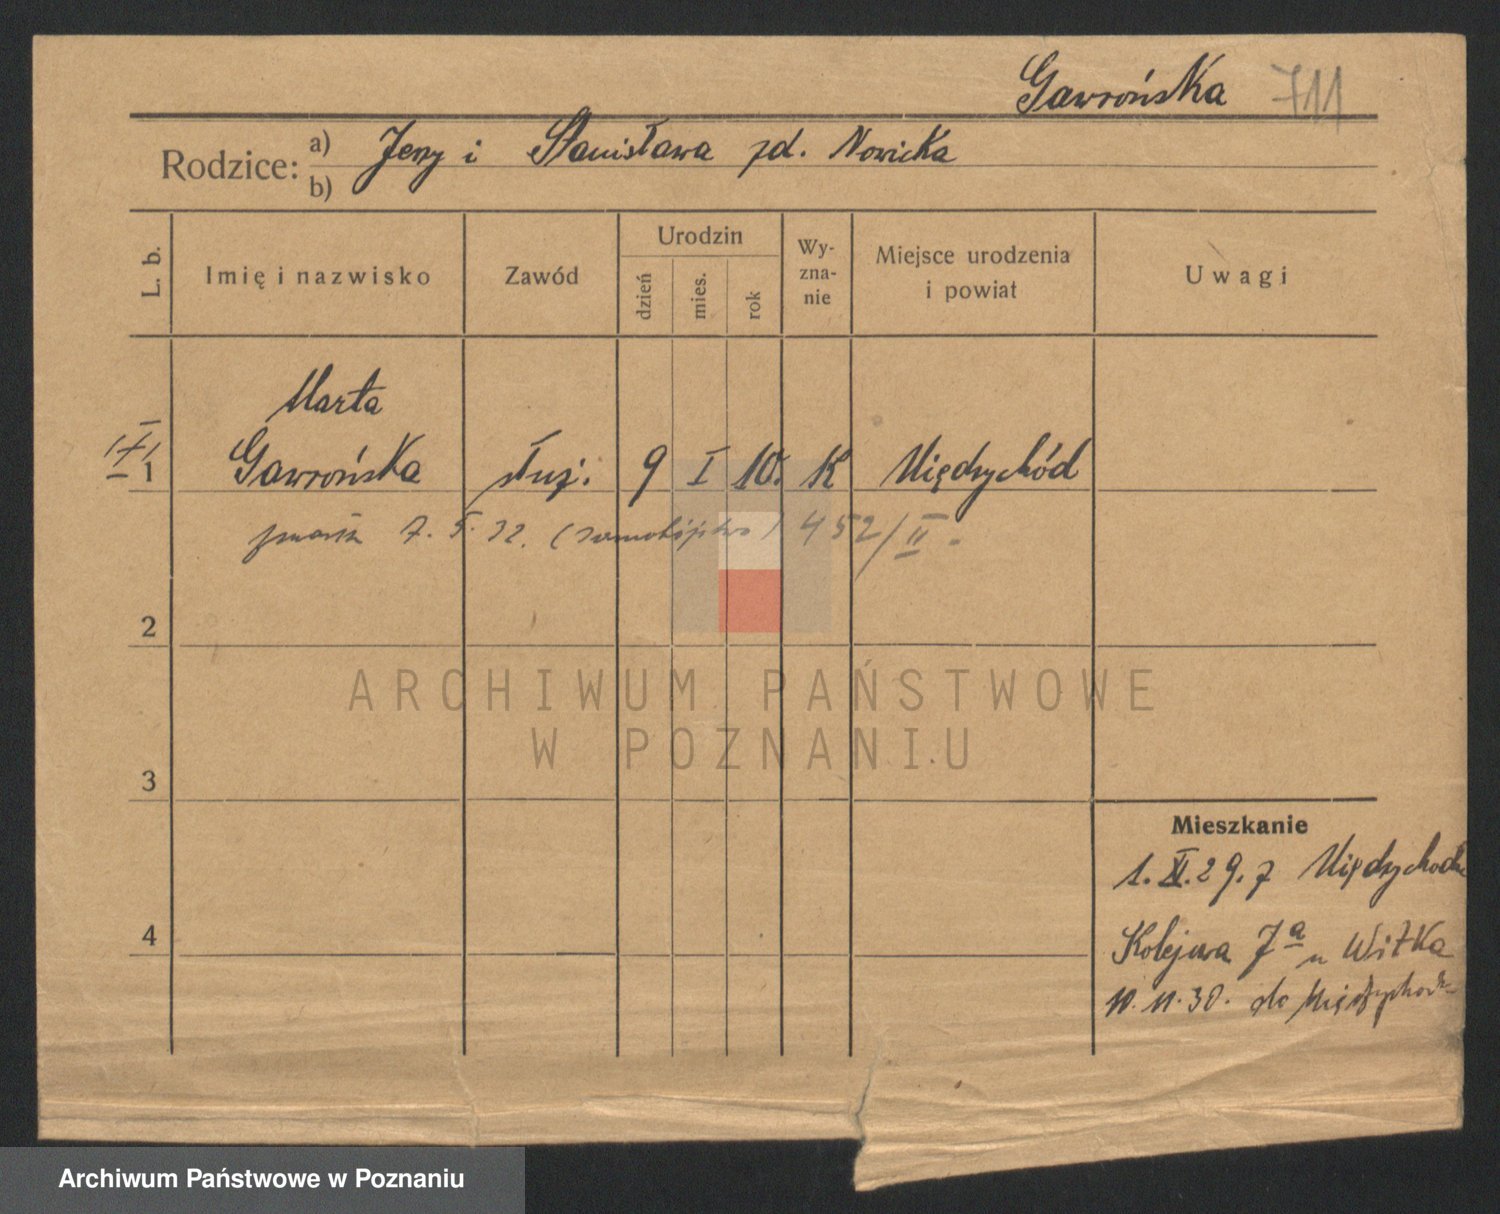 Gawrońska 711
Rodzice: a) Jerzy i Stanisława zd. Nowicka
b)
L. b.
Imię i nazwisko
Zawód
Urodzin
dzień
mies.
rok
Wy-
zna-
nie
Miejsce urodzenia
i powiat
Uwagi
Marta
1 Gawrońska służ. 9 I 10. K Międzychód
zmarła 7. 5. 32. (samobójstwo) 452/II.
2
ARCHIWUM PAŃSTWOWE
W POZNANIU
3
Mieszkanie
1. XI. 29. z Międzychodu
4
Kolejowa 7a u Witka
10. 11. 30. do Międzychodu
Archiwum Państwowe w Poznaniu